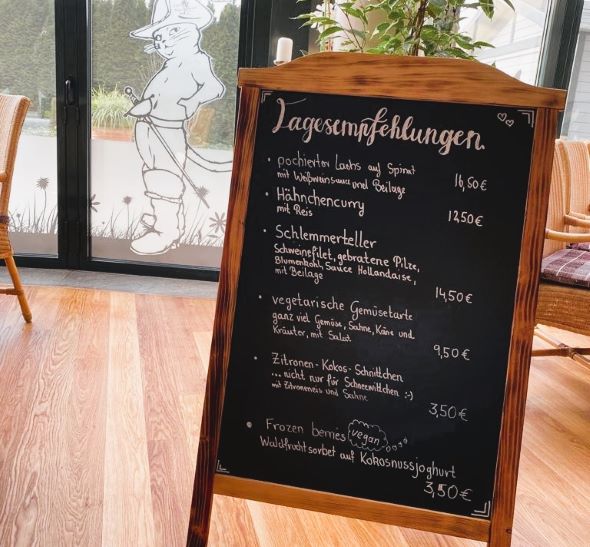 Tagesempfehlungen
• pochierter Lachs auf Spinat
mit Weißweinsauce und Beilage
16,50 €
• Hähnchencurry
mit Reis
12,50 €
• Schlemmerteller
Schweinefilet, gebratene Pilze,
Blumenkohl, Sauce Hollandaise,
mit Beilage
14,50 €
• vegetarische Gemüsetarte
ganz viel Gemüse, Sahne, Käse und
Kräuter, mit Salat
9,50 €
• Zitronen-Kokos-Schnittchen
... nicht nur für Schneewittchen :-)
mit Zitroneneis und Sahne
3,50 €
• Frozen berries vegan
Waldfruchtsorbet auf Kokosnussjoghurt
3,50 €